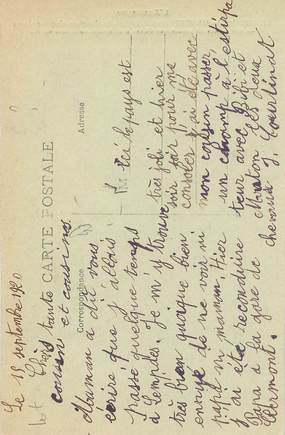 Le 15 septembre 1920
CARTE POSTALE
Correspondance
Adresse
Chers tante
cousin et cousins
Maman a dû vous
écrire que j'allais
passer quelque temps
à Lempdes. Je m'y trouve
très bien quoique bien
ennuyé de ne voir ni
papa ni maman. Hier
j'ai été reconduire
Papa à la gare de
Clermont.
Ici le pays est
très joli et hier
soir pour me
consoler j'ai été avec
mon cousin passer
un champ à l'extirpa
teur avec Bibi et
Marton les deux
chevaux J. Courtinat